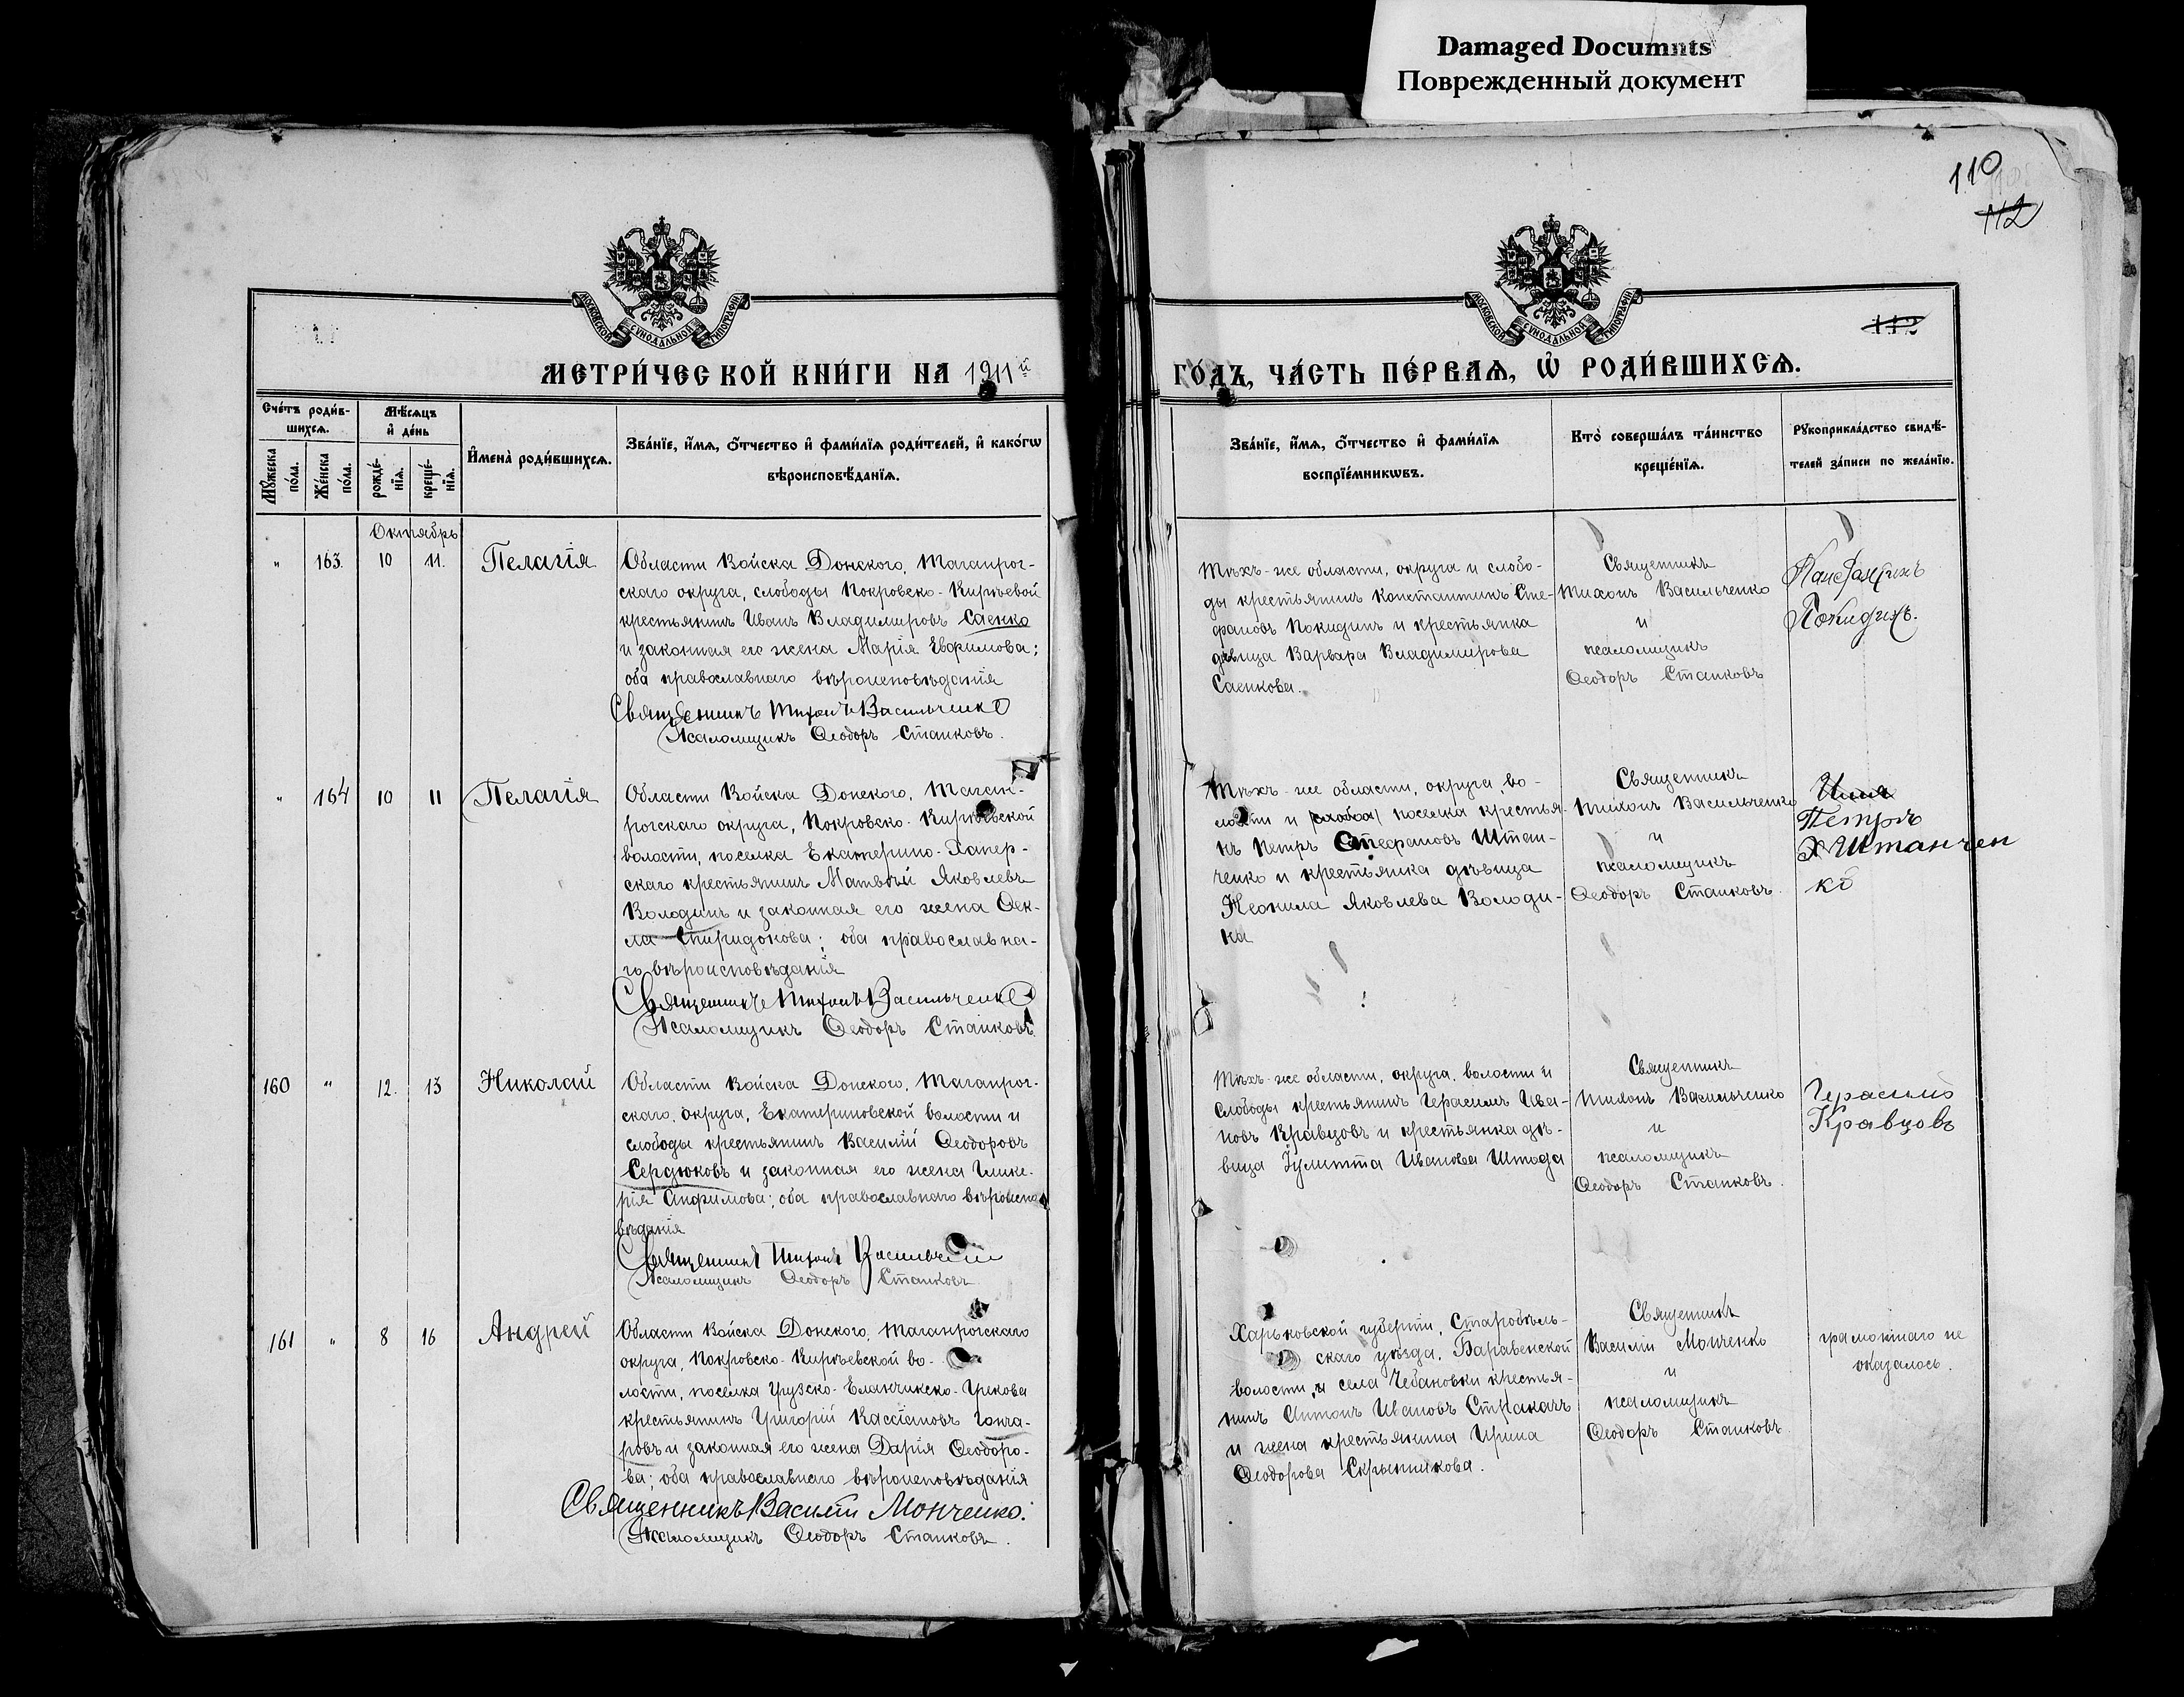 Damaged Documnts
Поврежденный документ
110
112
МОСКОВСКОЙ СѴНОДАЛЬНОЙ ТИПОГРАФІИ
МОСКОВСКОЙ СѴНОДАЛЬНОЙ ТИПОГРАФІИ
112
МЕТРИ́ЧЕСКОЙ КНИ́ГИ НА 1911й
ГО́ДЪ, ЧА́СТЬ ПЕ́РВАѦ, Ѡ҆ РОДИ́ВШИХСѦ.
Сче́тъ роди́в-
шихсѧ.
Мꙋ́жеска по́ла.
Же́нска по́ла.
Мѣ́сѧцъ
и҆ де́нь
рожде́-
нїѧ.
креще́-
нїѧ.
И҆мена̀ роди́вшихсѧ.
Зва́нїе, и҆́мѧ, ѻ҆́тчество и҆ фами́лїѧ роди́телей, и҆ како́гѡ
вѣроисповѣ́данїѧ.
Зва́нїе, и҆́мѧ, ѻ҆́тчество и҆ фами́лїѧ
воспрїе́мникѡвъ.
Кто̀ соверша́лъ та́инство
креще́нїѧ.
Рꙋкоприкла́дство свидѣ́-
телей за́писи по жела́нїю.
Октябрь
" 163. 10 11. Пелагія
Области Войска Донского, Таганрог-
скаго округа, слободы Покровско-Кирѣевой
крестьянинъ Иванъ Владимировъ Саенко
и законная его жена Марія Евфимова;
оба православнаго вѣроисповѣданія
Священникъ Тихонъ Васильченко
Псаломщикъ Ѳеодоръ Станковъ.
Тѣхъ-же области, округа и слобо-
ды крестьянинъ Константинъ Сте-
фановъ Покидинъ и крестьянка
дѣвица Варвара Владимирова
Саенкова.
Священникъ
Тихонъ Васильченко
и
псаломщикъ
Ѳеодоръ Станковъ
Покидинъ.
" 164 10 11 Пелагія
Области Войска Донского, Таган-
рогскаго округа, Покровско-Кирѣевской
волости, поселка Екатерино-Хапер-
скаго крестьянинъ Матвѣй Яковлевъ
Володинъ и законная его жена Ѳек-
ла Спиридонова; оба православна-
го вѣроисповѣданія
Священникъ Тихонъ Васильченко
Псаломщикъ Ѳеодоръ Станковъ
Тѣхъ-же области, округа, во-
лости и поселка крестья-
нъ Петръ Стефановъ Штан-
ченко и крестьянка дѣвица
Неонила Яковлева Володи-
на
Священникъ
Тихонъ Васильченко
и
псаломщикъ
Ѳеодоръ Станковъ.
Петръ
Штанчен
ко
160 " 12. 13 Николай
Области Войска Донского, Таганрог-
скаго округа, Екатериновской волости и
слободы крестьянинъ Василій Ѳеодоровъ
Сердюковъ и законная его жена Глике-
рія Анфимова; оба православнаго вѣроиспо
вѣданія
Священникъ Тихонъ Васильченко
Псаломщикъ Ѳеодоръ Станковъ
Тѣхъ-же области, округа, волости и
слободы крестьянинъ Герасимъ Ива-
новъ Кравцовъ и крестьянка дѣ-
вица Іулитта Иванова Шпода
Священникъ
Тихонъ Васильченко
и
псаломщикъ
Ѳеодоръ Станковъ.
Герасимъ
Кравцовъ
161 " 8 16 Андрей
Области Войска Донского, Таганрогскаго
округа, Покровско-Кирѣевской во-
лости, поселка Грузско-Еланчикско-Грекова
крестьянинъ Григорій Кассіановъ Гонча-
ровъ и законная его жена Дарія Ѳеодоро-
ва; оба православнаго вѣроисповѣданія
Священникъ Василій Мончемко.
Псаломщикъ Ѳеодоръ Станковъ.
Харьковской губерніи, Старобѣль-
скаго уѣзда,
волости, и села крестья-
нинъ Антонъ Ивановъ
и жена крестьянина Ирина
Ѳеодорова Скрынникова.
Священникъ
Василій Мончемко
и
псаломщикъ
Ѳеодоръ Станковъ
грамотнаго не
оказалось.